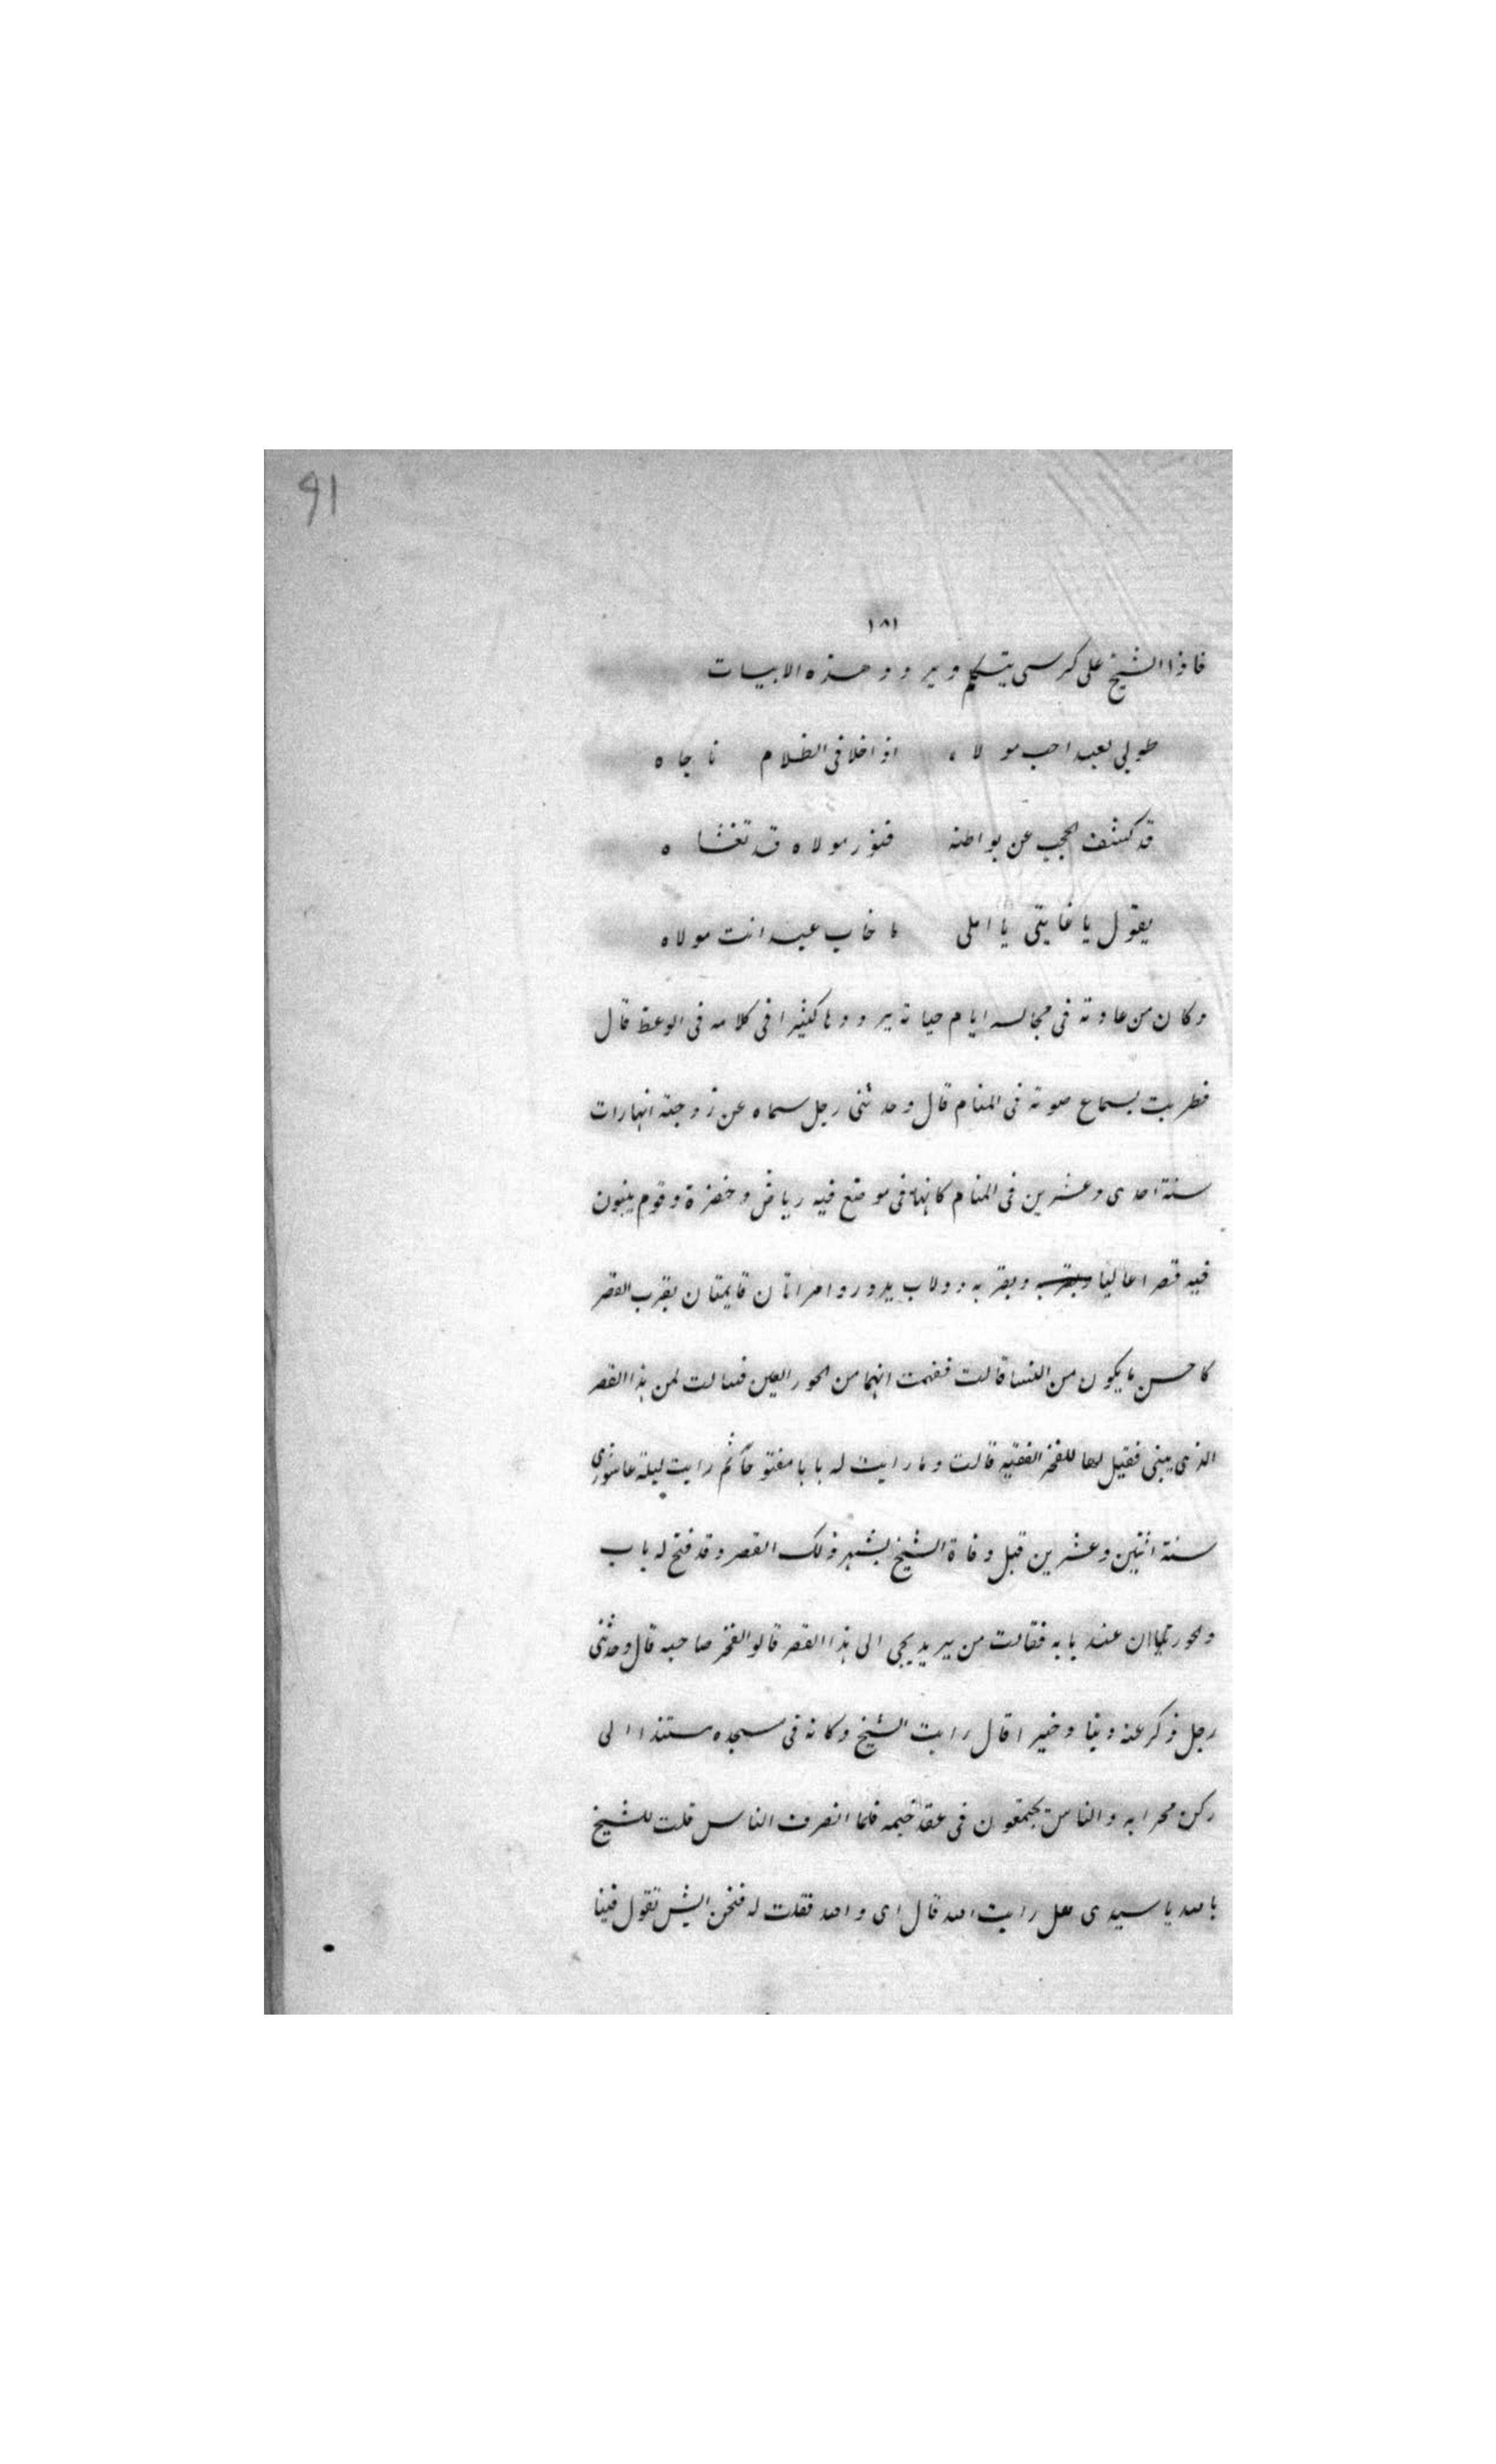 91
١٨١
فاذا الشيخ على كرسى يتكلم ويردد هذه الابيات
طوبى لعبد احب مولاه اذا خلا فى الظلام ناجاه
قد كشف الحجب عن بواطنه فنور مولاه قد تغشاه
يقول يا غايتى يا املى ما خاب عبد انت مولاه
وكان من عادته فى مجالسه ايام حياته يرددها كثيرا فى كلامه فى الوعظ قال
فطربت بسماع صوته فى المنام قال وحدثنى رجل سماه عن زوجته انها رات
سنة احدى وعشرين فى المنام كانها فى موضع فيه رياض وخضرة وقوم يبنون
فيه قصرا عاليا وبقربه دولاب يدور وامراتان قايمتان بقرب القصر
كاحسن ما يكون من النسا قالت ففهمت انهما من الحور العين فسالت لمن هذا القصر
الذى يبنى فقيل لها للفخر الفقيه قالت وما رايت له بابا مفتوحا ثم رايت ليلة عاشورى
سنة اثنين وعشرين قبل وفاة الشيخ بشهر ذلك القصر وقد فتح له باب
وحوريتان عند بابه فقالت من يريد يجى الى هذا القصر قالو الفخر صاحبه قال وحدثنى
رجل ذكر عنه دينا وخيرا قال رايت الشيخ وكانه فى مسجده مستندا الى
ركن محرابه والناس يجتمعون فى عقد ختمه فلما انصرف الناس قلت للشيخ
بالله يا سيدى هل رايت الله قال اى والله فقلت له فنحن ايش تقول فينا